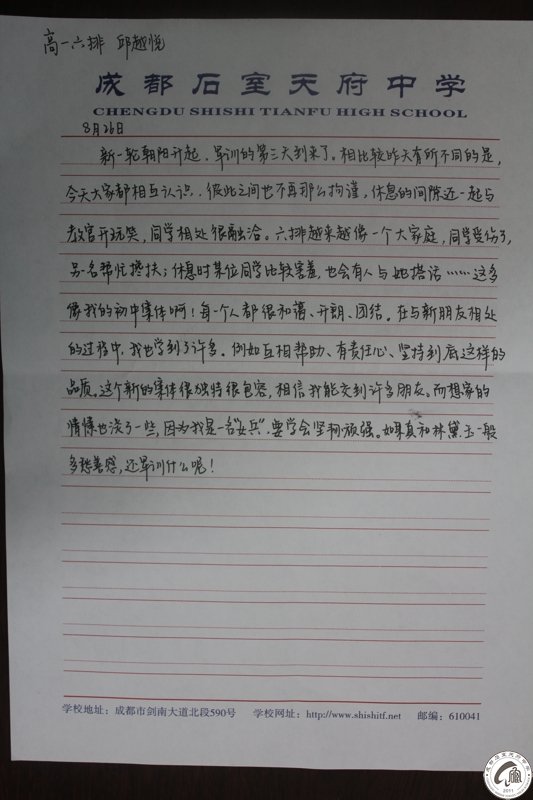 高一六排 邱越悦
成都石室天府中学
CHENGDU SHISHI TIANFU HIGH SCHOOL
8月26日
新一轮朝阳升起，军训的第三天到来了。相比较昨天有所不同的是，
今天大家都相互认识，彼此之间也不再那么拘谨，休息的间隙还一起与
教官开玩笑，同学相处很融洽。六排越来越像一个大家庭，同学受伤了，
另一名帮忙搀扶；休息时某位同学比较害羞，也会有人与她搭话……这多
像我的初中集体啊！每一个人都很和蔼、开朗、团结。在与新朋友相处
的过程中，我也学到了许多。例如互相帮助、有责任心、坚持到底这样的
品质。这个新的集体很独特很包容，相信我能交到许多朋友。而想家的
情愫也淡了一些，因为我是一名“女兵”，要学会坚韧顽强。如果真和林黛玉一般
多愁善感，还军训什么呢！
学校地址：成都市剑南大道北段590号 学校网址：http://www.shishitf.net 邮编：610041
2011